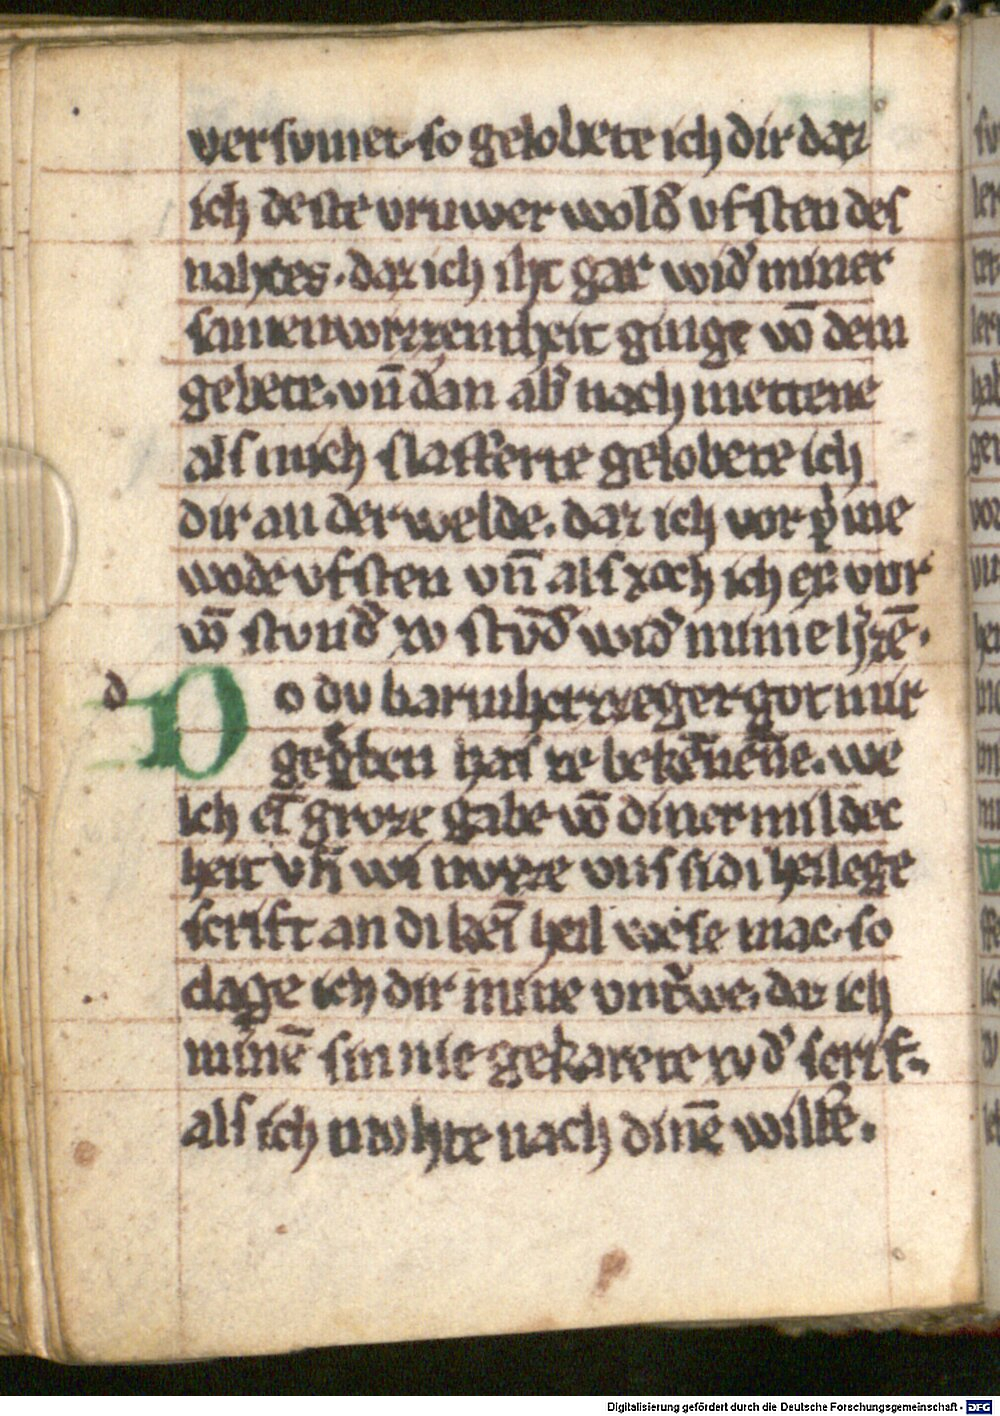 versumet. so gelobete ich dir daz
ich deste vruwer wold᷑ vf sten des
nahtes. daz ich iht gar wid᷑ miner
samenwizzentheit ginge vō dem
gebete. vn̄ dan ab᷑ nach mettene
als mich slafferte gelobete ich
dir an der welde. daz ich vor p᷑me
wode vf sten vn̄ als zoch ich ez vur
vō stund᷑ zv stvd᷑ wid᷑ mime h᷑zē.
d
Do du barmherzzeger got mir
geg᷑ben has ze bekēnene. we
lch eī groze gabe vō diner mildec
heit vn̄ wi nvzze vns si di heilege
scrift an di keī heil wese mac. so
clage ich dir mine vntr᷑we. daz ich
minē sin nie gekarete zv d᷑ scrif
als ich mohte nach dinē willē.
Digitalisierung gefördert durch die Deutsche Forschungsgemeinschaft - DFG